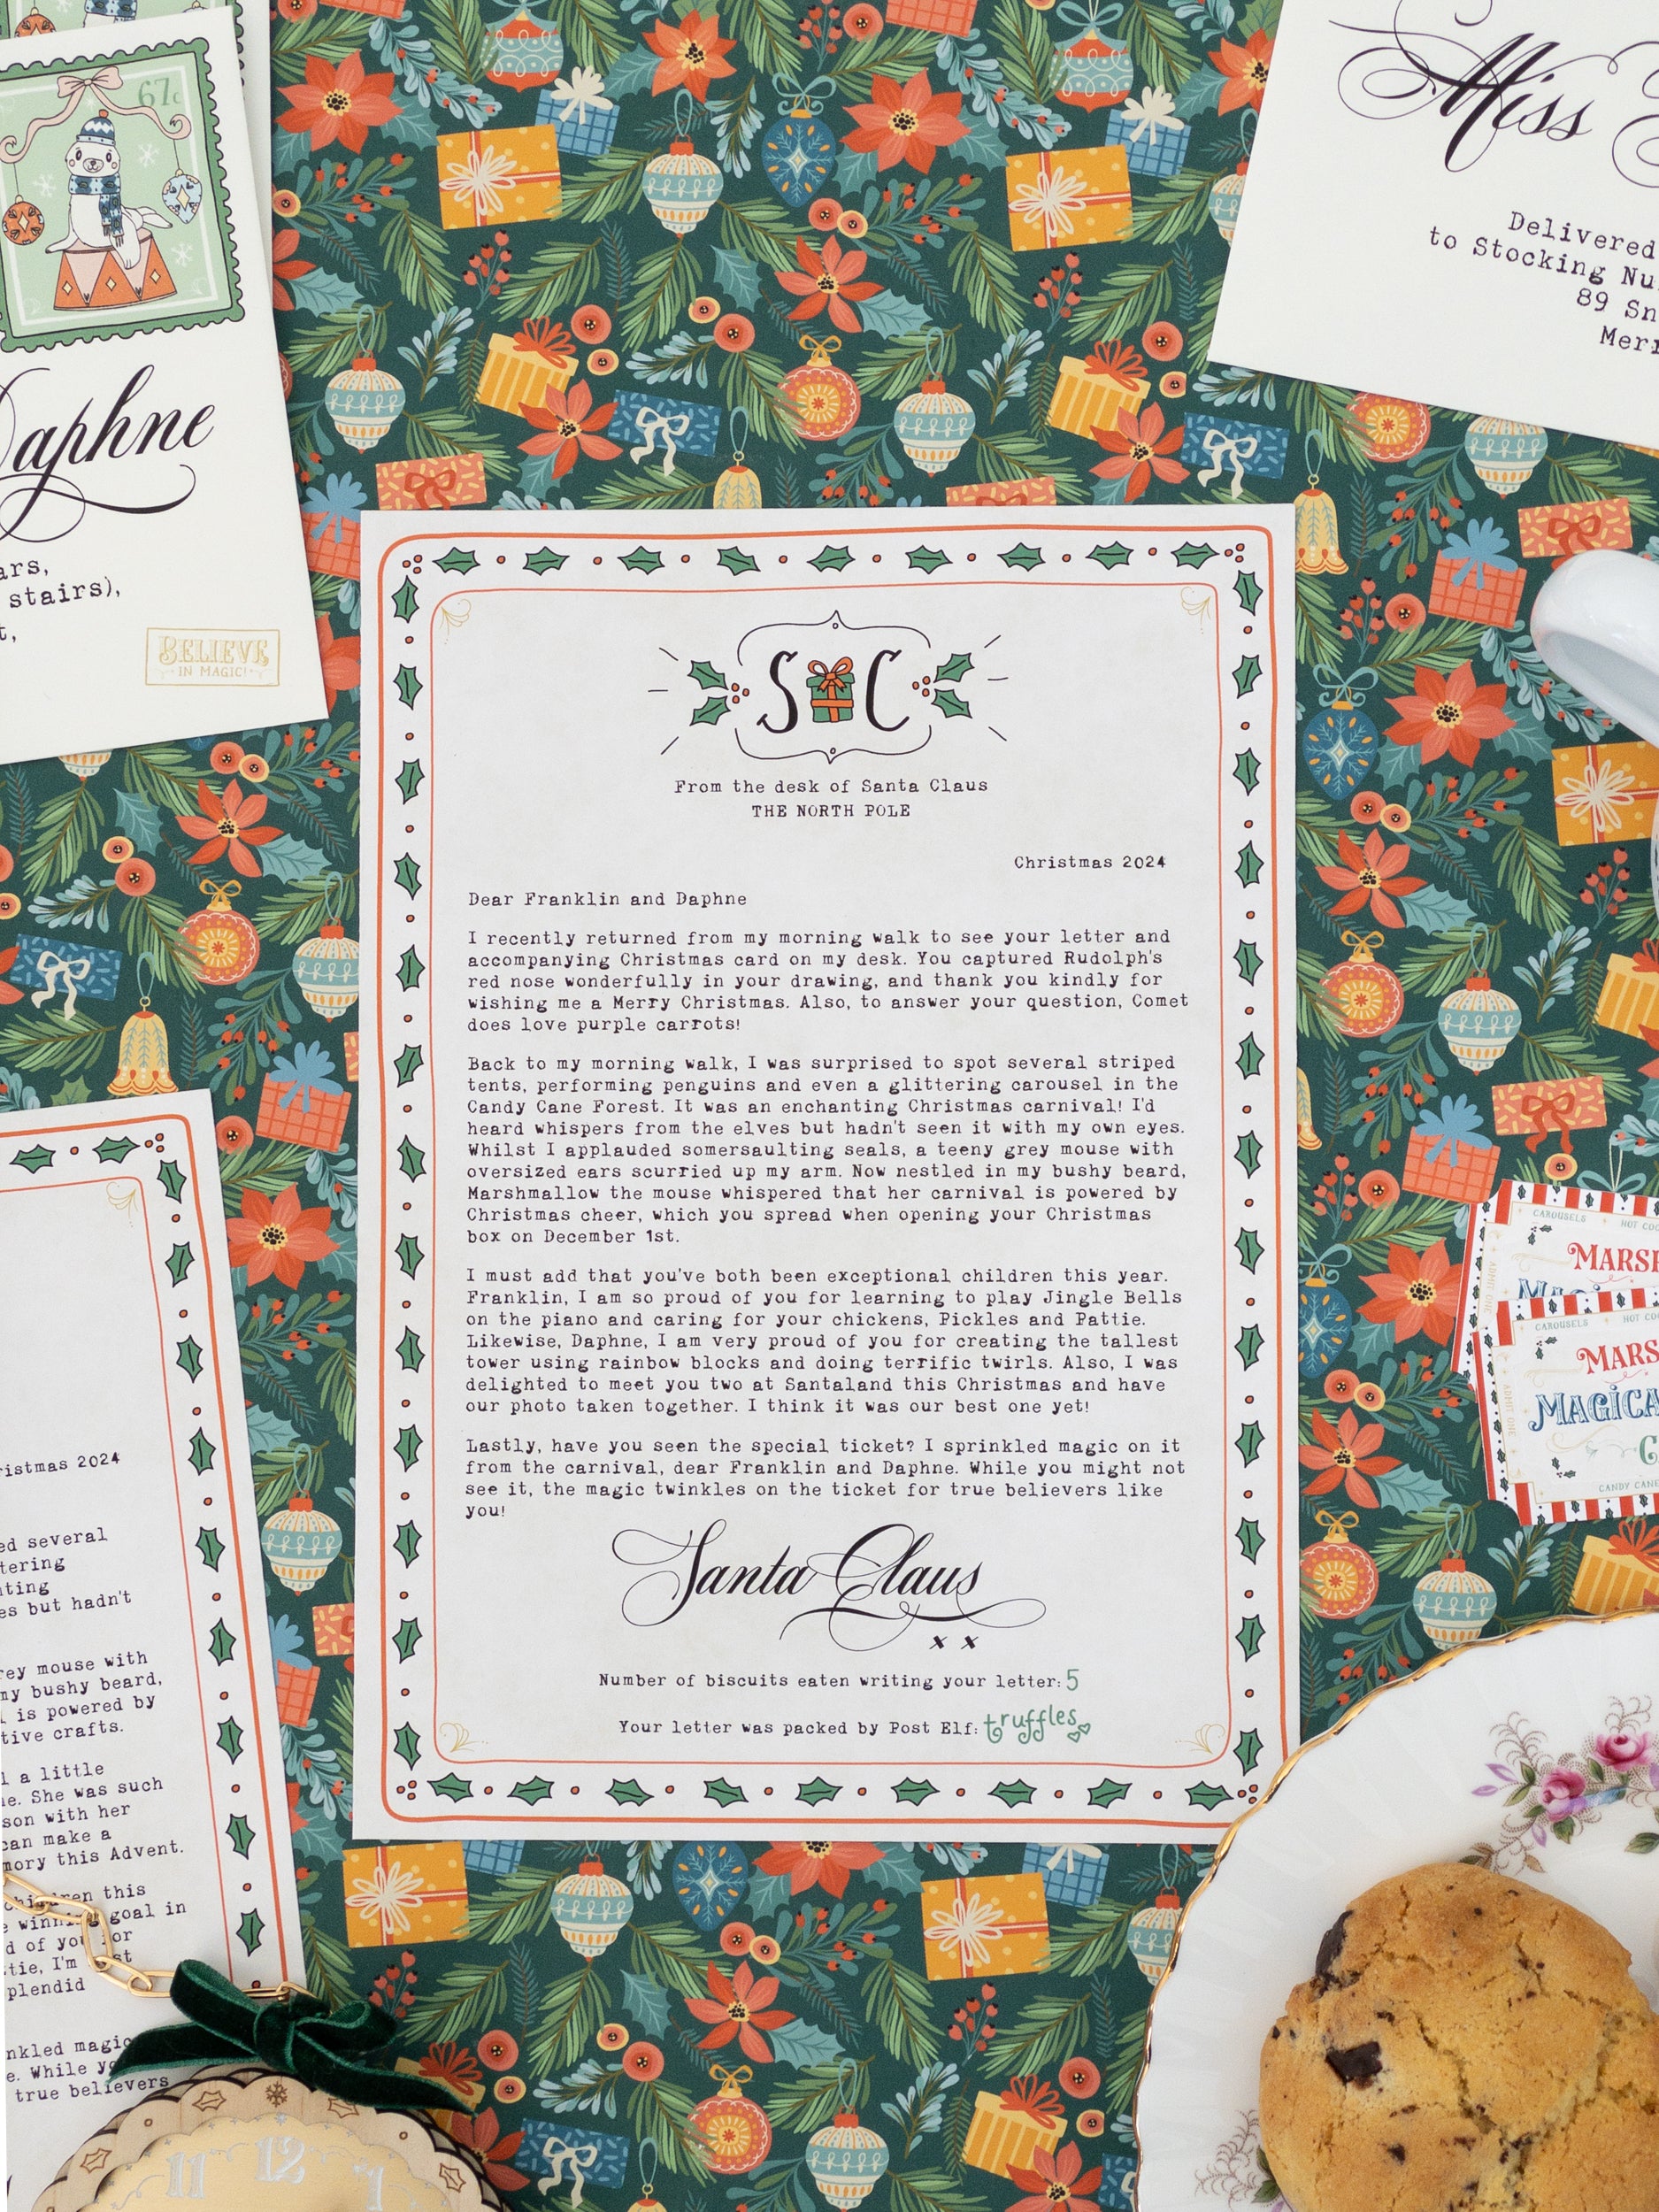 67c
Daphne
stairs),
BELIEVE
IN MAGIC!
Miss
Delivered
to Stocking
89
S C
From the desk of Santa Claus
THE NORTH POLE
Christmas 2024
Dear Franklin and Daphne
I recently returned from my morning walk to see your letter and
accompanying Christmas card on my desk. You captured Rudolph's
red nose wonderfully in your drawing, and thank you kindly for
wishing me a Merry Christmas. Also, to answer your question, Comet
does love purple carrots!
Back to my morning walk, I was surprised to spot several striped
tents, performing penguins and even a glittering carousel in the
Candy Cane Forest. It was an enchanting Christmas carnival! I'd
heard whispers from the elves but hadn't seen it with my own eyes.
Whilst I applauded somersaulting seals, a teeny grey mouse with
oversized ears scurried up my arm. Now nestled in my bushy beard,
Marshmallow the mouse whispered that her carnival is powered by
Christmas cheer, which you spread when opening your Christmas
box on December 1st.
I must add that you've both been exceptional children this year.
Franklin, I am so proud of you for learning to play Jingle Bells
on the piano and caring for your chickens, Pickles and Pattie.
Likewise, Daphne, I am very proud of you for creating the tallest
tower using rainbow blocks and doing terrific twirls. Also, I was
delighted to meet you two at Santaland this Christmas and have
our photo taken together. I think it was our best one yet!
Lastly, have you seen the special ticket? I sprinkled magic on it
from the carnival, dear Franklin and Daphne. While you might not
see it, the magic twinkles on the ticket for true believers like
you!
Santa Claus
x x
Number of biscuits eaten writing your letter: 5
Your letter was packed by Post Elf: truffles
2024
several
but hadn't
mouse with
my bushy beard,
is powered by
crafts.
a little
She was such
with her
can make a
this Advent.
this
goal in
of you for
I'm
magic
While
true believers
CAROUSELS
HOT
CAROUSELS
HOT
ADMIT ONE
CANDY CANE
11 12 1